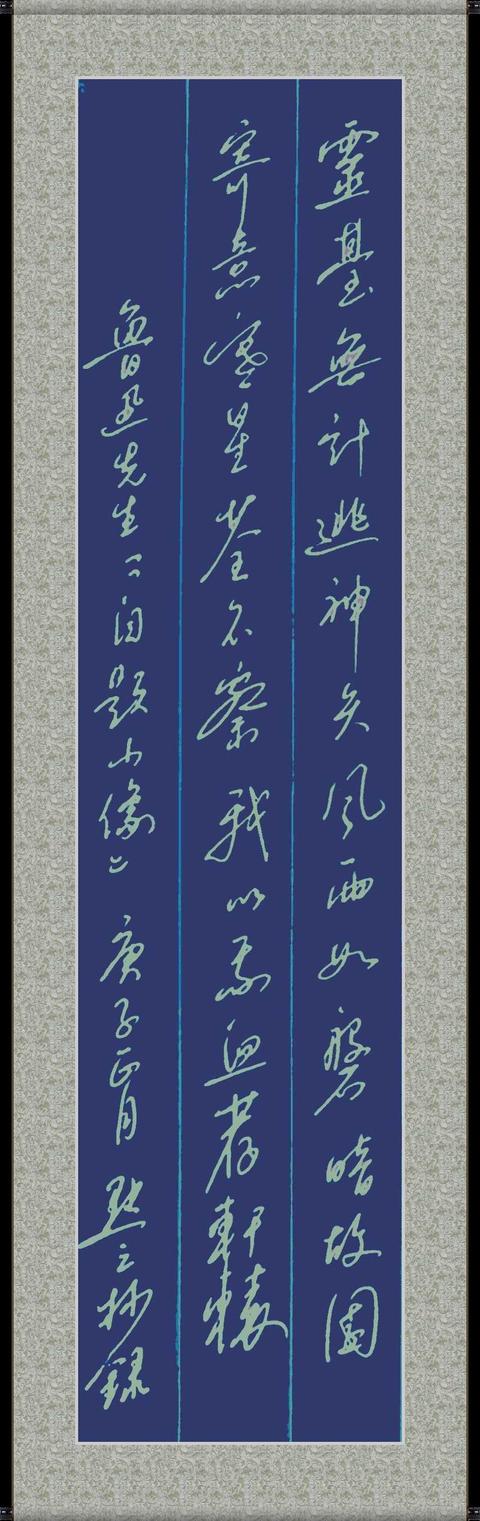 靈臺無計逃神矢風雨如磐暗故園
寄意寒星荃不察我以我血荐軒轅
魯迅先生《自題小像》 庚子正月 默之抄錄